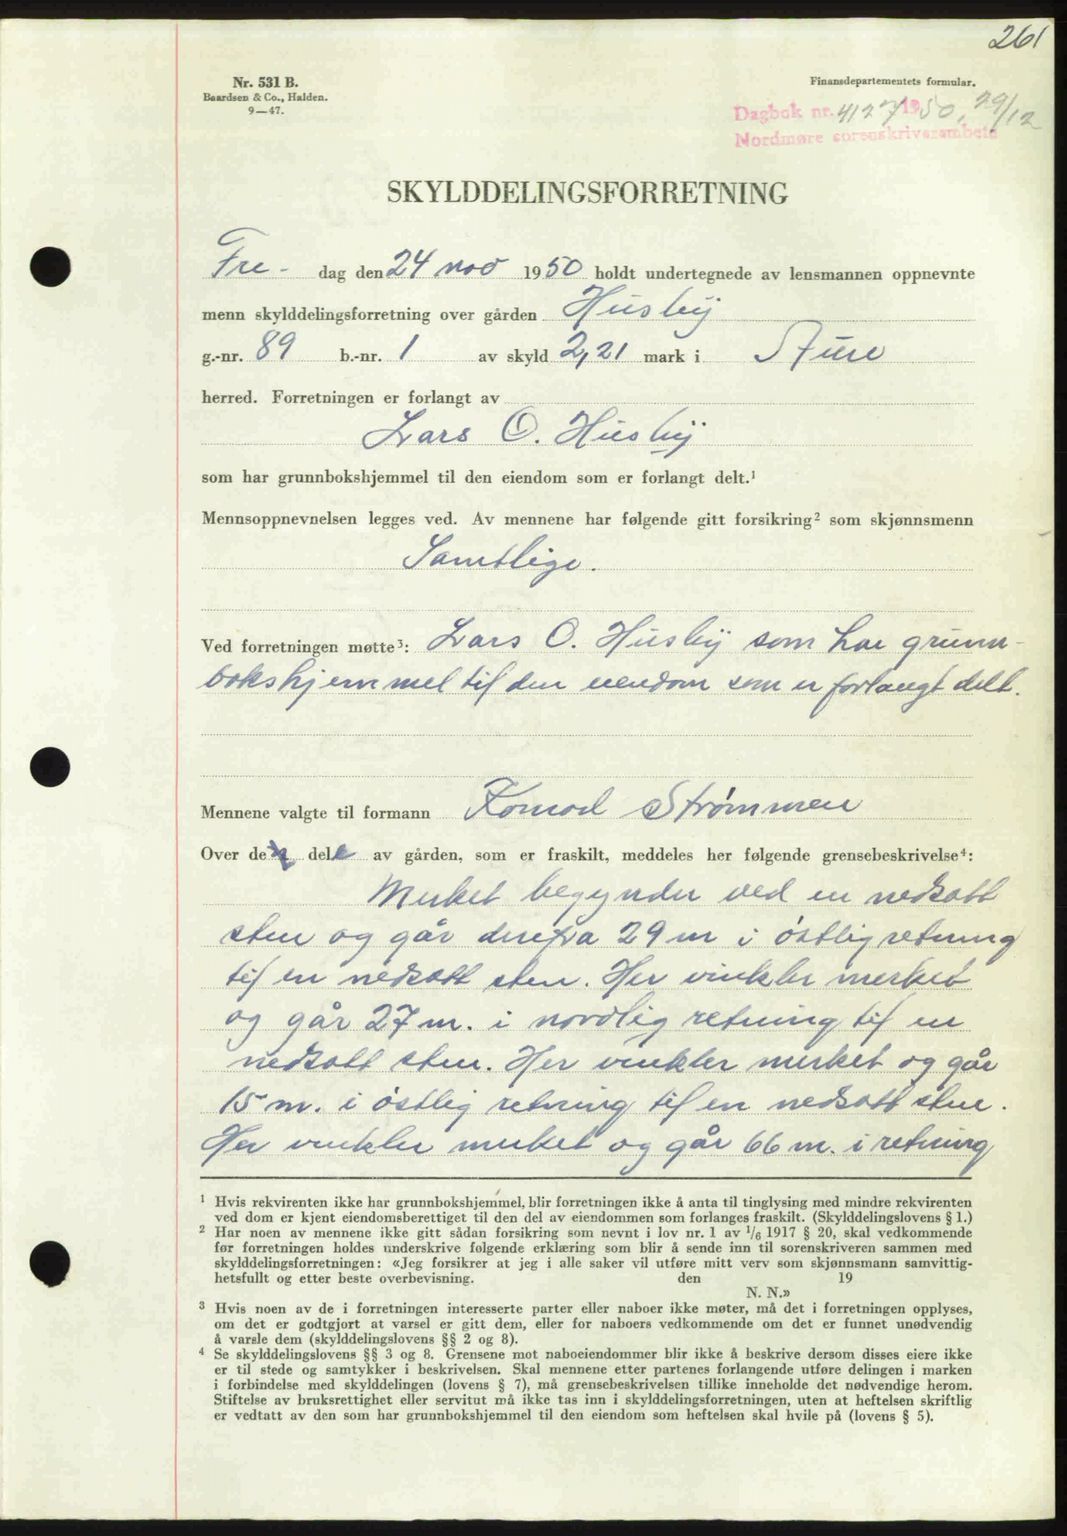 261
Nr. 531 B.
Baardsen & Co., Halden.
9—47.
Finansdepartementets formular.
Dagbok nr. 4127 1950, 29/12
Nordmøre sorenskriverembede
SKYLDDELINGSFORRETNING
Fre- dag den 24 nov 1950 holdt undertegnede av lensmannen oppnevnte
menn skylddelingsforretning over gården Husby
g.-nr. 89 b.-nr. 1 av skyld 2,21 mark i Aure
herred. Forretningen er forlangt av
Lars O. Husby
som har grunnbokshjemmel til den eiendom som er forlangt delt.¹
Mennsoppnevnelsen legges ved. Av mennene har følgende gitt forsikring² som skjønnsmenn
Samtlige.
Ved forretningen møtte³: Lars O. Husby som har grunn-
bokshjemmel til den eiendom som er forlangt delt.
Mennene valgte til formann Konrad Strømmen
Over de dele av gården, som er fraskilt, meddeles her følgende grensebeskrivelse⁴:
Merket begynder ved en nedsatt
sten og går derefra 29 m i östlig retning
til en nedsatt sten. Her vinkler merket
og går 27 m. i nordlig retning til en
nedsatt sten. Her vinkler merket og går
15 m. i östlig retning til en nedsatt sten.
Her vinkler merket og går 66 m. i retning
¹ Hvis rekvirenten ikke har grunnbokshjemmel, blir forretningen ikke å anta til tinglysing med mindre rekvirenten
ved dom er kjent eiendomsberettiget til den del av eiendommen som forlanges fraskilt. (Skylddelingslovens § 1.)
² Har noen av mennene ikke gitt sådan forsikring som nevnt i lov nr. 1 av 1/6 1917 § 20, skal vedkommende
før forretningen holdes underskrive følgende erklæring som blir å sende inn til sorenskriveren sammen med
skylddelingsforretningen: «Jeg forsikrer at jeg i alle saker vil utføre mitt verv som skjønnsmann samvittig-
hetsfullt og etter beste overbevisning. den 19
N. N.»
³ Hvis noen av de i forretningen interesserte parter eller naboer ikke møter, må det i forretningen opplyses,
om det er godtgjort at varsel er gitt dem, eller for naboers vedkommende om det er funnet unødvendig
å varsle dem (skylddelingslovens §§ 2 og 8).
⁴ Se skylddelingslovens §§ 3 og 8. Grensene mot naboeiendommer blir ikke å beskrive dersom disses eiere ikke
er til stede og samtykker i beskrivelsen. Skal mennene etter partenes forlangende utføre delingen i marken
i forbindelse med skylddelingen (lovens § 7), må grensebeskrivelsen tillike inneholde det nødvendige herom.
Stiftelse av bruksrettighet eller servitut må ikke tas inn i skylddelingsforretningen, uten at heftelsen skriftlig
er vedtatt av den som har grunnbokshjemmel til den eiendom som heftelsen skal hvile på (lovens § 5).